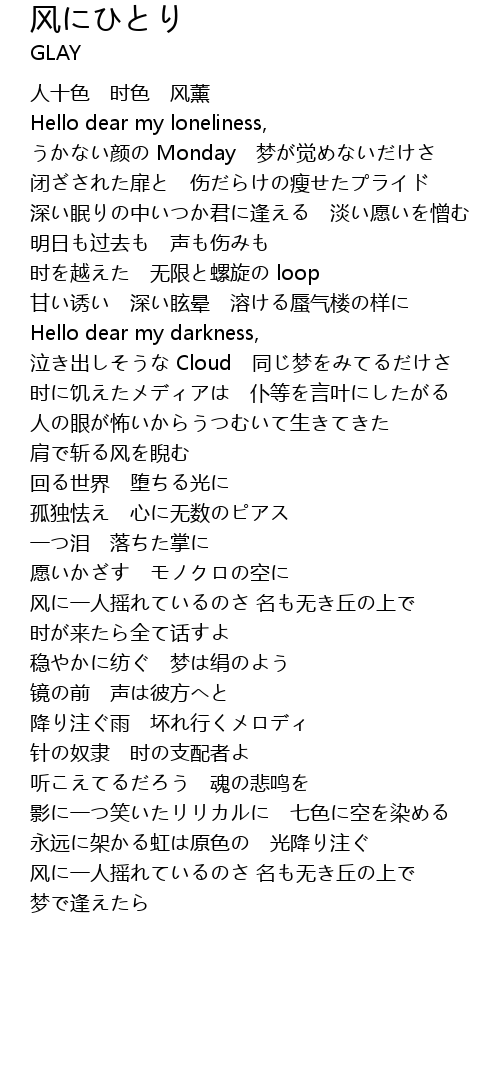 风にひとり
GLAY
人十色　时色　风薫
Hello dear my loneliness,
うかない颜の Monday　梦が觉めないだけさ
闭ざされた扉と　伤だらけの瘦せたプライド
深い眠りの中いつか君に逢える　淡い愿いを憎む
明日も过去も　声も伤みも
时を越えた　无限と螺旋の loop
甘い诱い　深い眩晕　溶ける蜃气楼の样に
Hello dear my darkness,
泣き出しそうな Cloud　同じ梦をみてるだけさ
时に饥えたメディアは　仆等を言叶にしたがる
人の眼が怖いからうつむいて生きてきた
肩で斩る风を睨む
回る世界　堕ちる光に
孤独怯え　心に无数のピアス
一つ泪　落ちた掌に
愿いかざす　モノクロの空に
风に一人摇れているのさ 名も无き丘の上で
时が来たら全て话すよ
稳やかに纺ぐ　梦は绢のよう
镜の前　声は彼方へと
降り注ぐ雨　坏れ行くメロディ
针の奴隶　时の支配者よ
听こえてるだろう　魂の悲鸣を
影に一つ笑いたリリカルに　七色に空を染める
永远に架かる虹は原色の　光降り注ぐ
风に一人摇れているのさ 名も无き丘の上で
梦で逢えたら